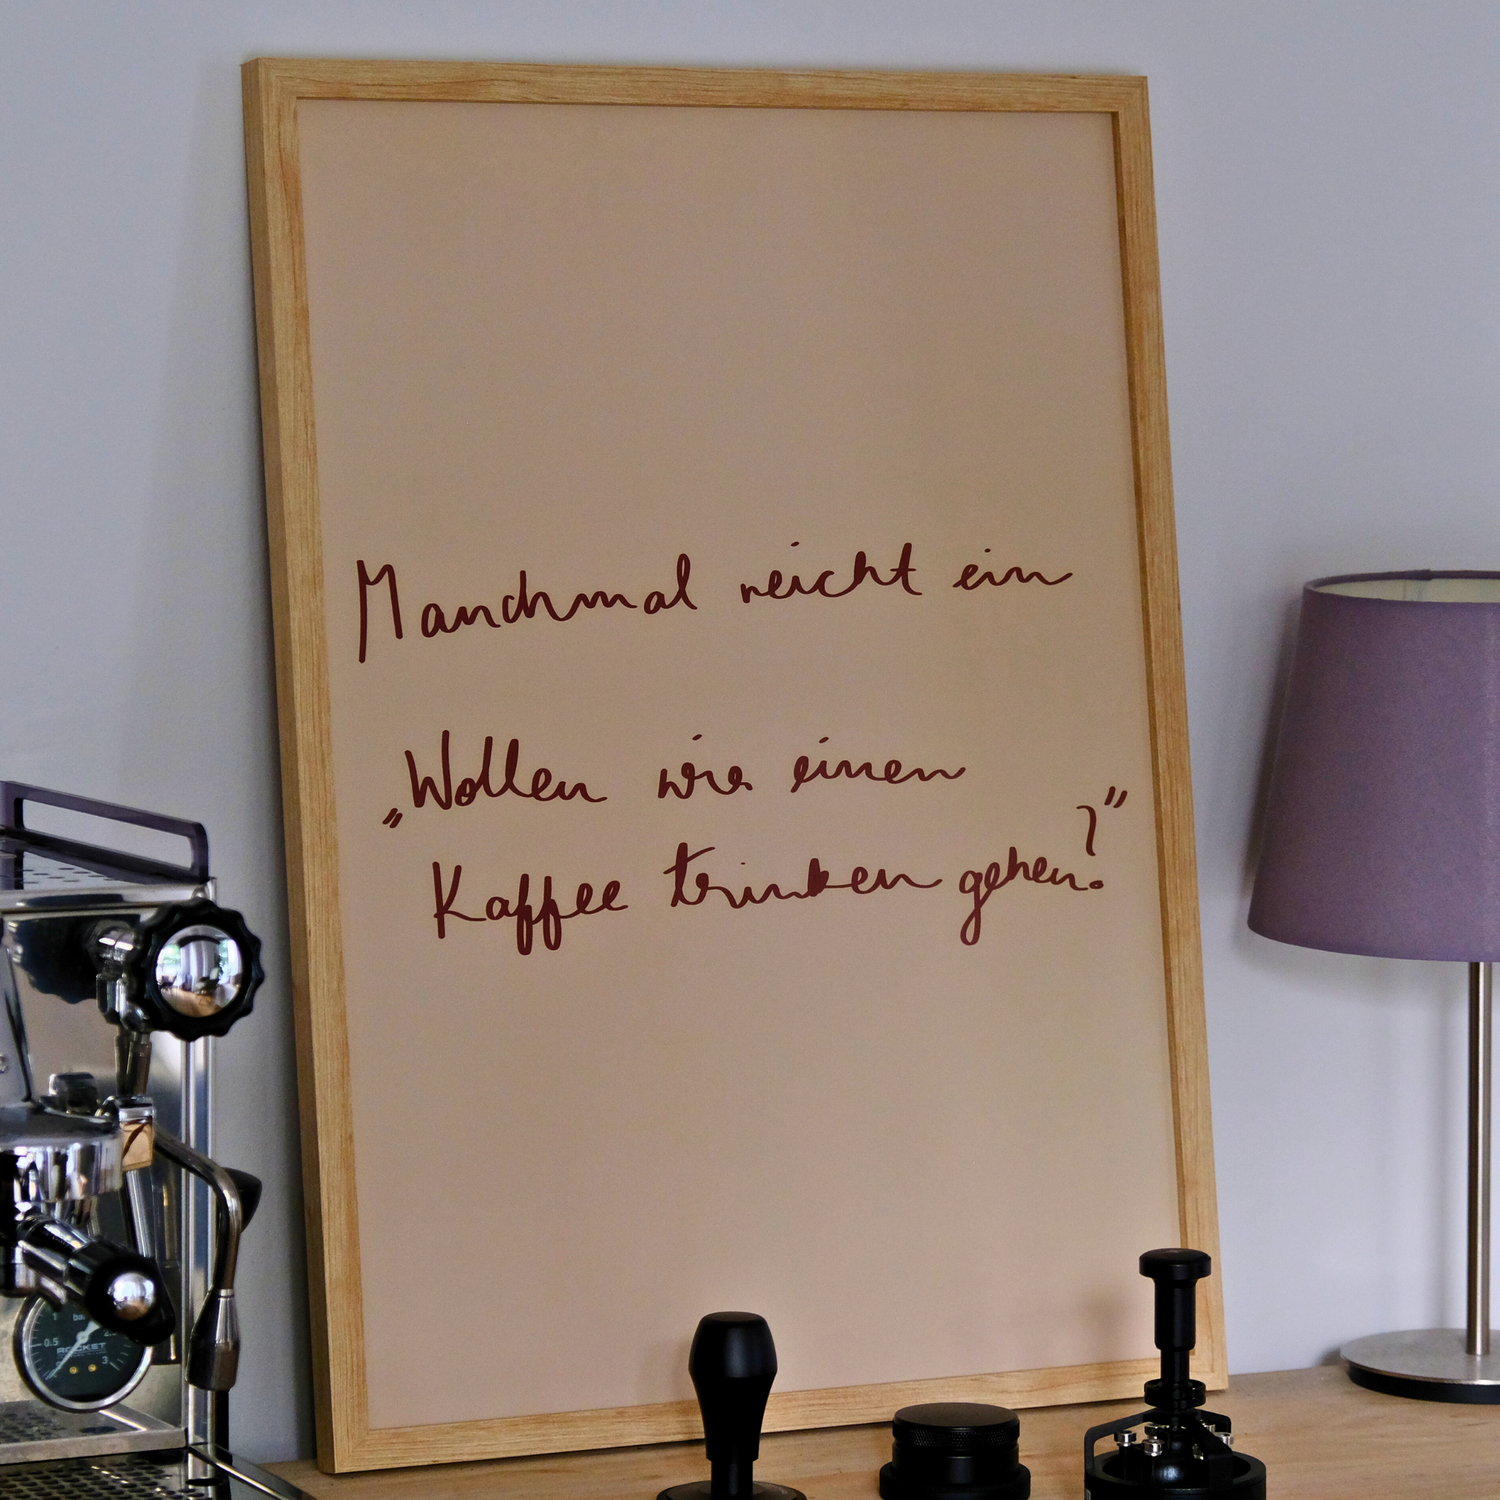 Manchmal reicht ein
„Wollen wir einen
Kaffee trinken gehen?"
bar
0.5
ROCKET
3